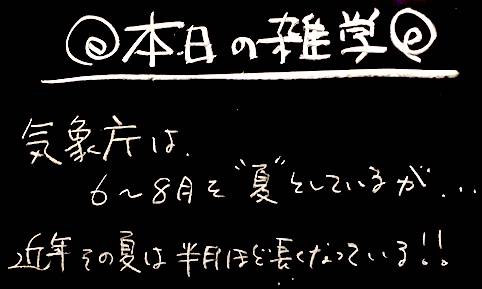 @本日の雑学@
気象庁は、
6～8月を"夏"としているが...
近年その夏は半月ほど長くなっている!!